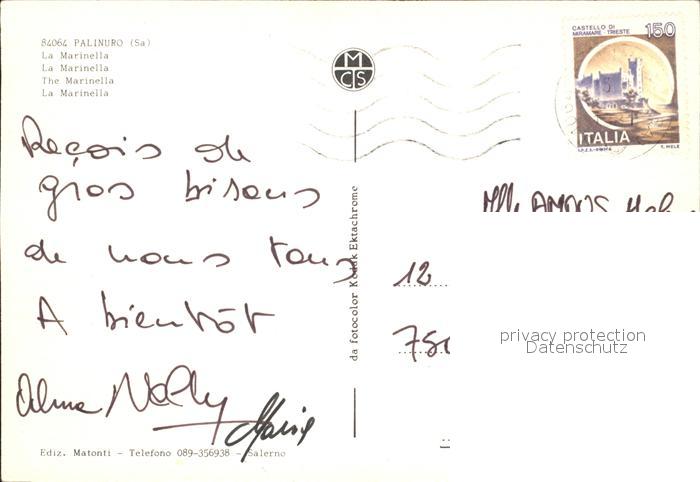 84064 PALINURO (Sa)
La Marinella
La Marinella
The Marinella
La Marinella
M
C S
CASTELLO DI
MIRAMARE - TRIESTE
150
ITALIA
I.P.Z.S.-ROMA
E. MELE
Reçois de
gros bisous
de nous tous
A bientôt
Alma Nelly
Marie
da fotocolor Kodak Ektachrome
Mlle AMDOS
12
750
privacy protection
Datenschutz
Ediz. Matonti - Telefono 089-356938 - Salerno